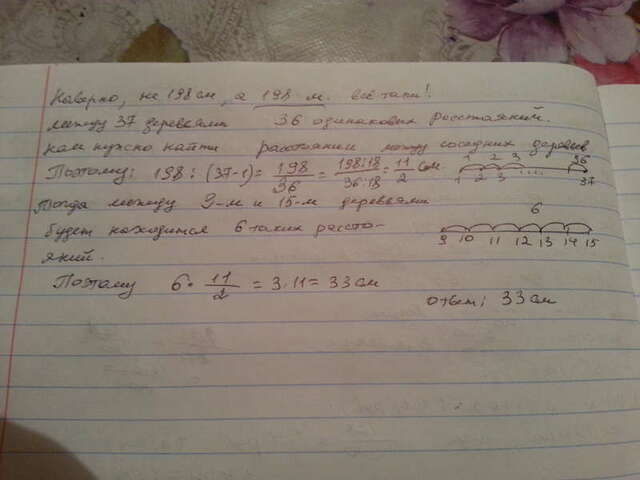 Наверно, не 198 см, а 198 м. всё таки!
между 37 деревьями 36 одинаковых расстояний.
нам нужно найти расстояния между соседних деревьев
Поэтому: 198 : (37-1) = 198/36 = 198:18/36:18 = 11/2 см
1 2 3 36
1 2 3 .... 37
Тогда между 9-м и 15-м деревьями
будет находится 6 таких рассто-
яний.
6
9 10 11 12 13 14 15
Поэтому 6 · 11/2 = 3 · 11 = 33 см
ответ: 33 см